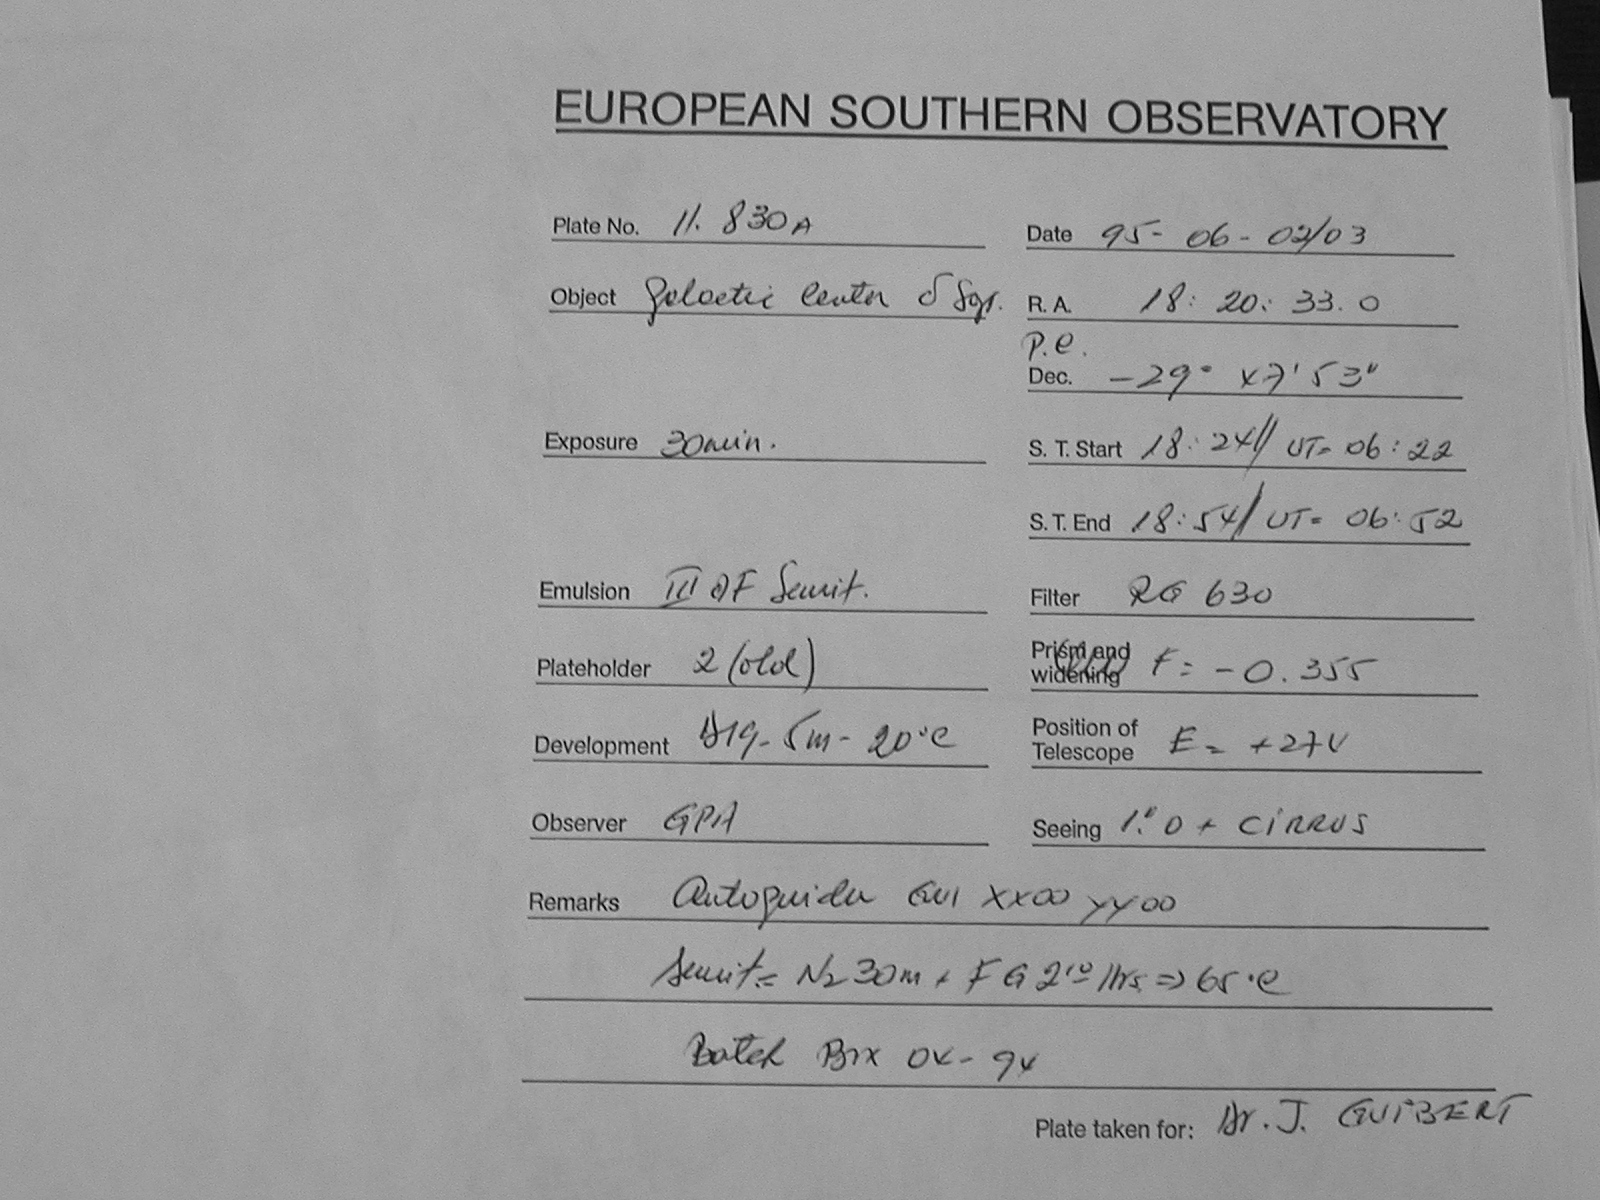 EUROPEAN SOUTHERN OBSERVATORY
Plate No. 11.830A
Date 95-06-02/03
Object Galactic Center δ Sgr.
R. A. 18: 20: 33.0
P.e.
Dec. -29° 47' 53"
Exposure 30min.
S. T. Start 18:24// UT= 06:22
S. T. End 18:54/ UT= 06:52
Emulsion III aF Sensit.
Filter RG 630
Plateholder 2 (old)
Prism and widening F= -0.355
Development D19-5m-20°C
Position of Telescope E= +274
Observer GPA
Seeing 1."0 + CIRRUS
Remarks Autoguider XX00 YY00
Sensit= N2 30m + FG 2 hrs => 65°C
Batch Box 04-94
Plate taken for: Dr. J. GUIBERT